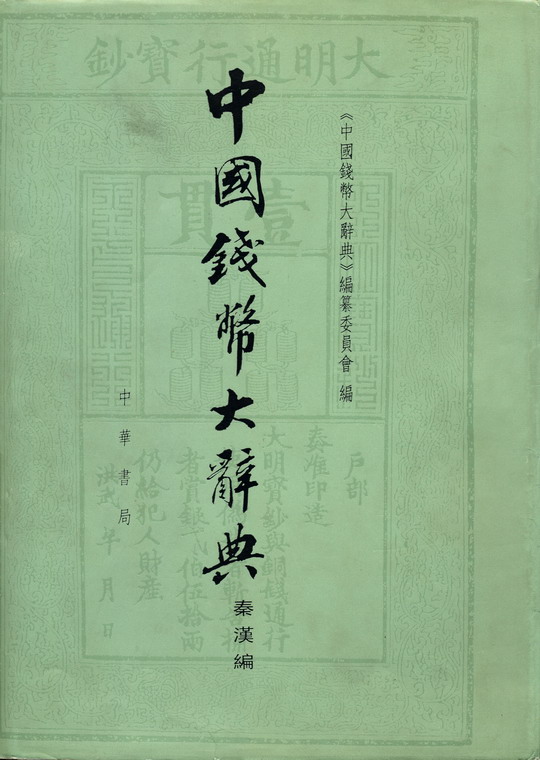 《中國錢幣大辭典》編纂委員會 編
中國錢幣大辭典
秦漢編
中華書局
大明通行寶鈔
壹貫
戶部
奏准印造
大明寶鈔與銅錢通行
者賞銀弍伯伍拾兩
仍給犯人財產
洪武 年 月 日